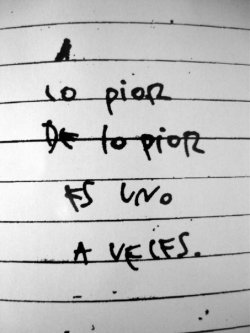 A
lo pior
DE lo pior
ES UNO
A VECES.